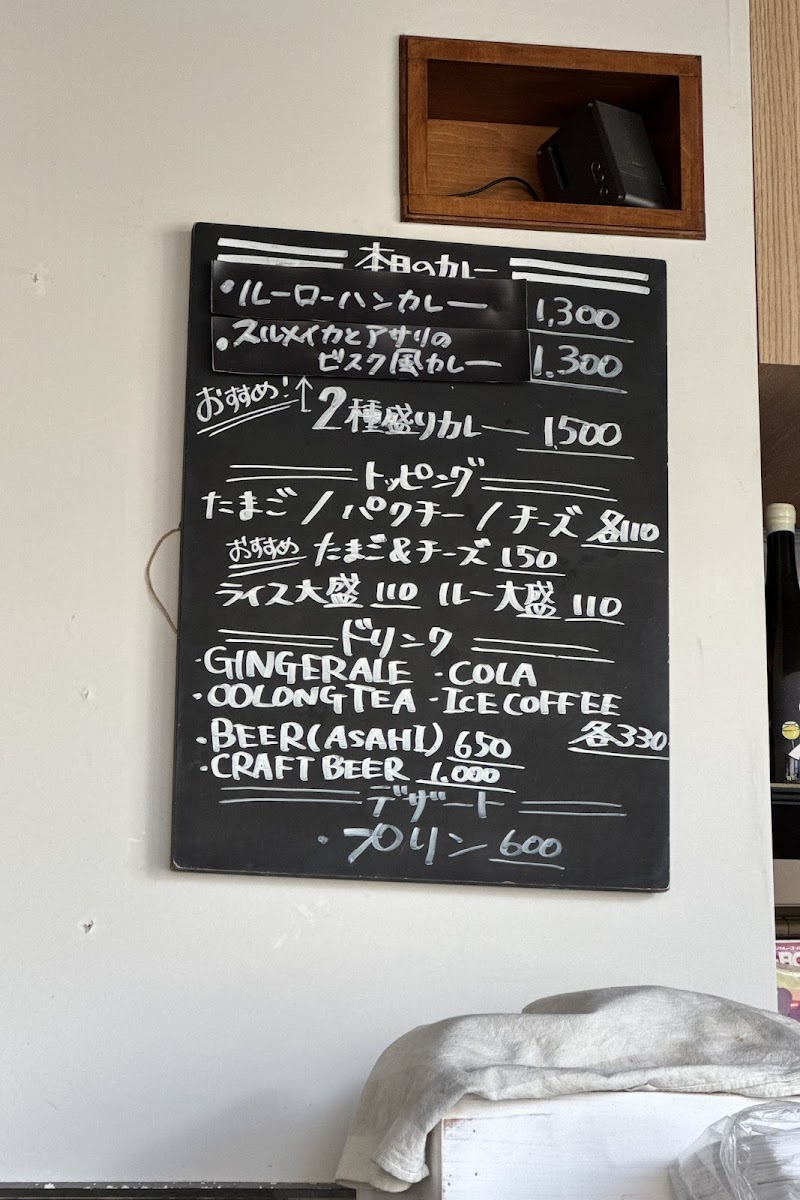 本日のカレー
・ルーローハンカレー 1,300
・スルメイカとアサリの
ビスク風カレー 1.300
おすすめ!↑
2種盛りカレー 1500
トッピング
たまご/パクチー/チーズ 各110
おすすめ たまご&チーズ 150
ライス大盛 110 ルー大盛 110
ドリンク
・GINGERALE ・COLA
・OOLONG TEA ・ICE COFFEE
各330
・BEER(ASAHI) 650
・CRAFT BEER 1.000
デザート
・プリン 600